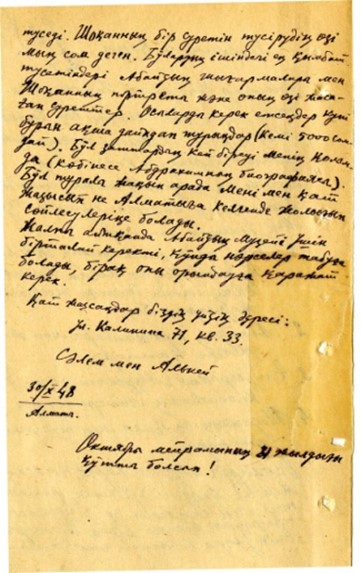 түседі. Шоқанның бір суретін түсірудің өзі
мың сом деген. Бұлардың ішіндегі ең қымбат
түсетіндері Абайдың шығармалары мен
Шоқанның портреті және оның өзі
ған суреттер. Осыларға керек
бұрын ақша дайындап тұрыңдар (кемі 5000 сом-
дай). Бұл заттардың кай біреуі менің қолым-
да (көбінесе Абдрахманның биографиясы).
Бұл туралы жақын арада менімен хат
жазысып не Алматыға келгенде жолығып
сөйлесулеріңе болады.
Жалпы айтқанда Абайдың Музейі үшін
бірталай керекті, құнды нәрселер табуға
болады, бірақ оны орындауға қаражат
керек.
Хат жазсаңдар біздің үйдің адресі:
ул. Калинина 71, кв. 33.
Сәлем мен Әлкей
30/X 48
Алматы.
Октябрь мейрамының 31 жылдығы
құтты болсын!